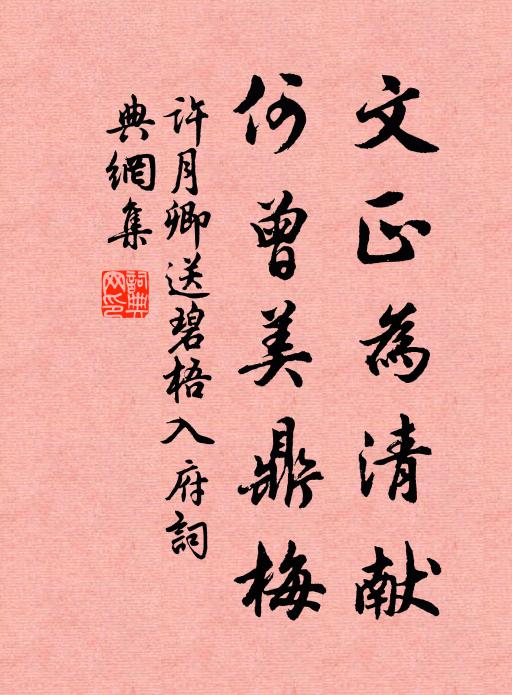 文正為清献
何曾美鼎梅
许月卿送碧梧入府詞
典網集
詞典網印